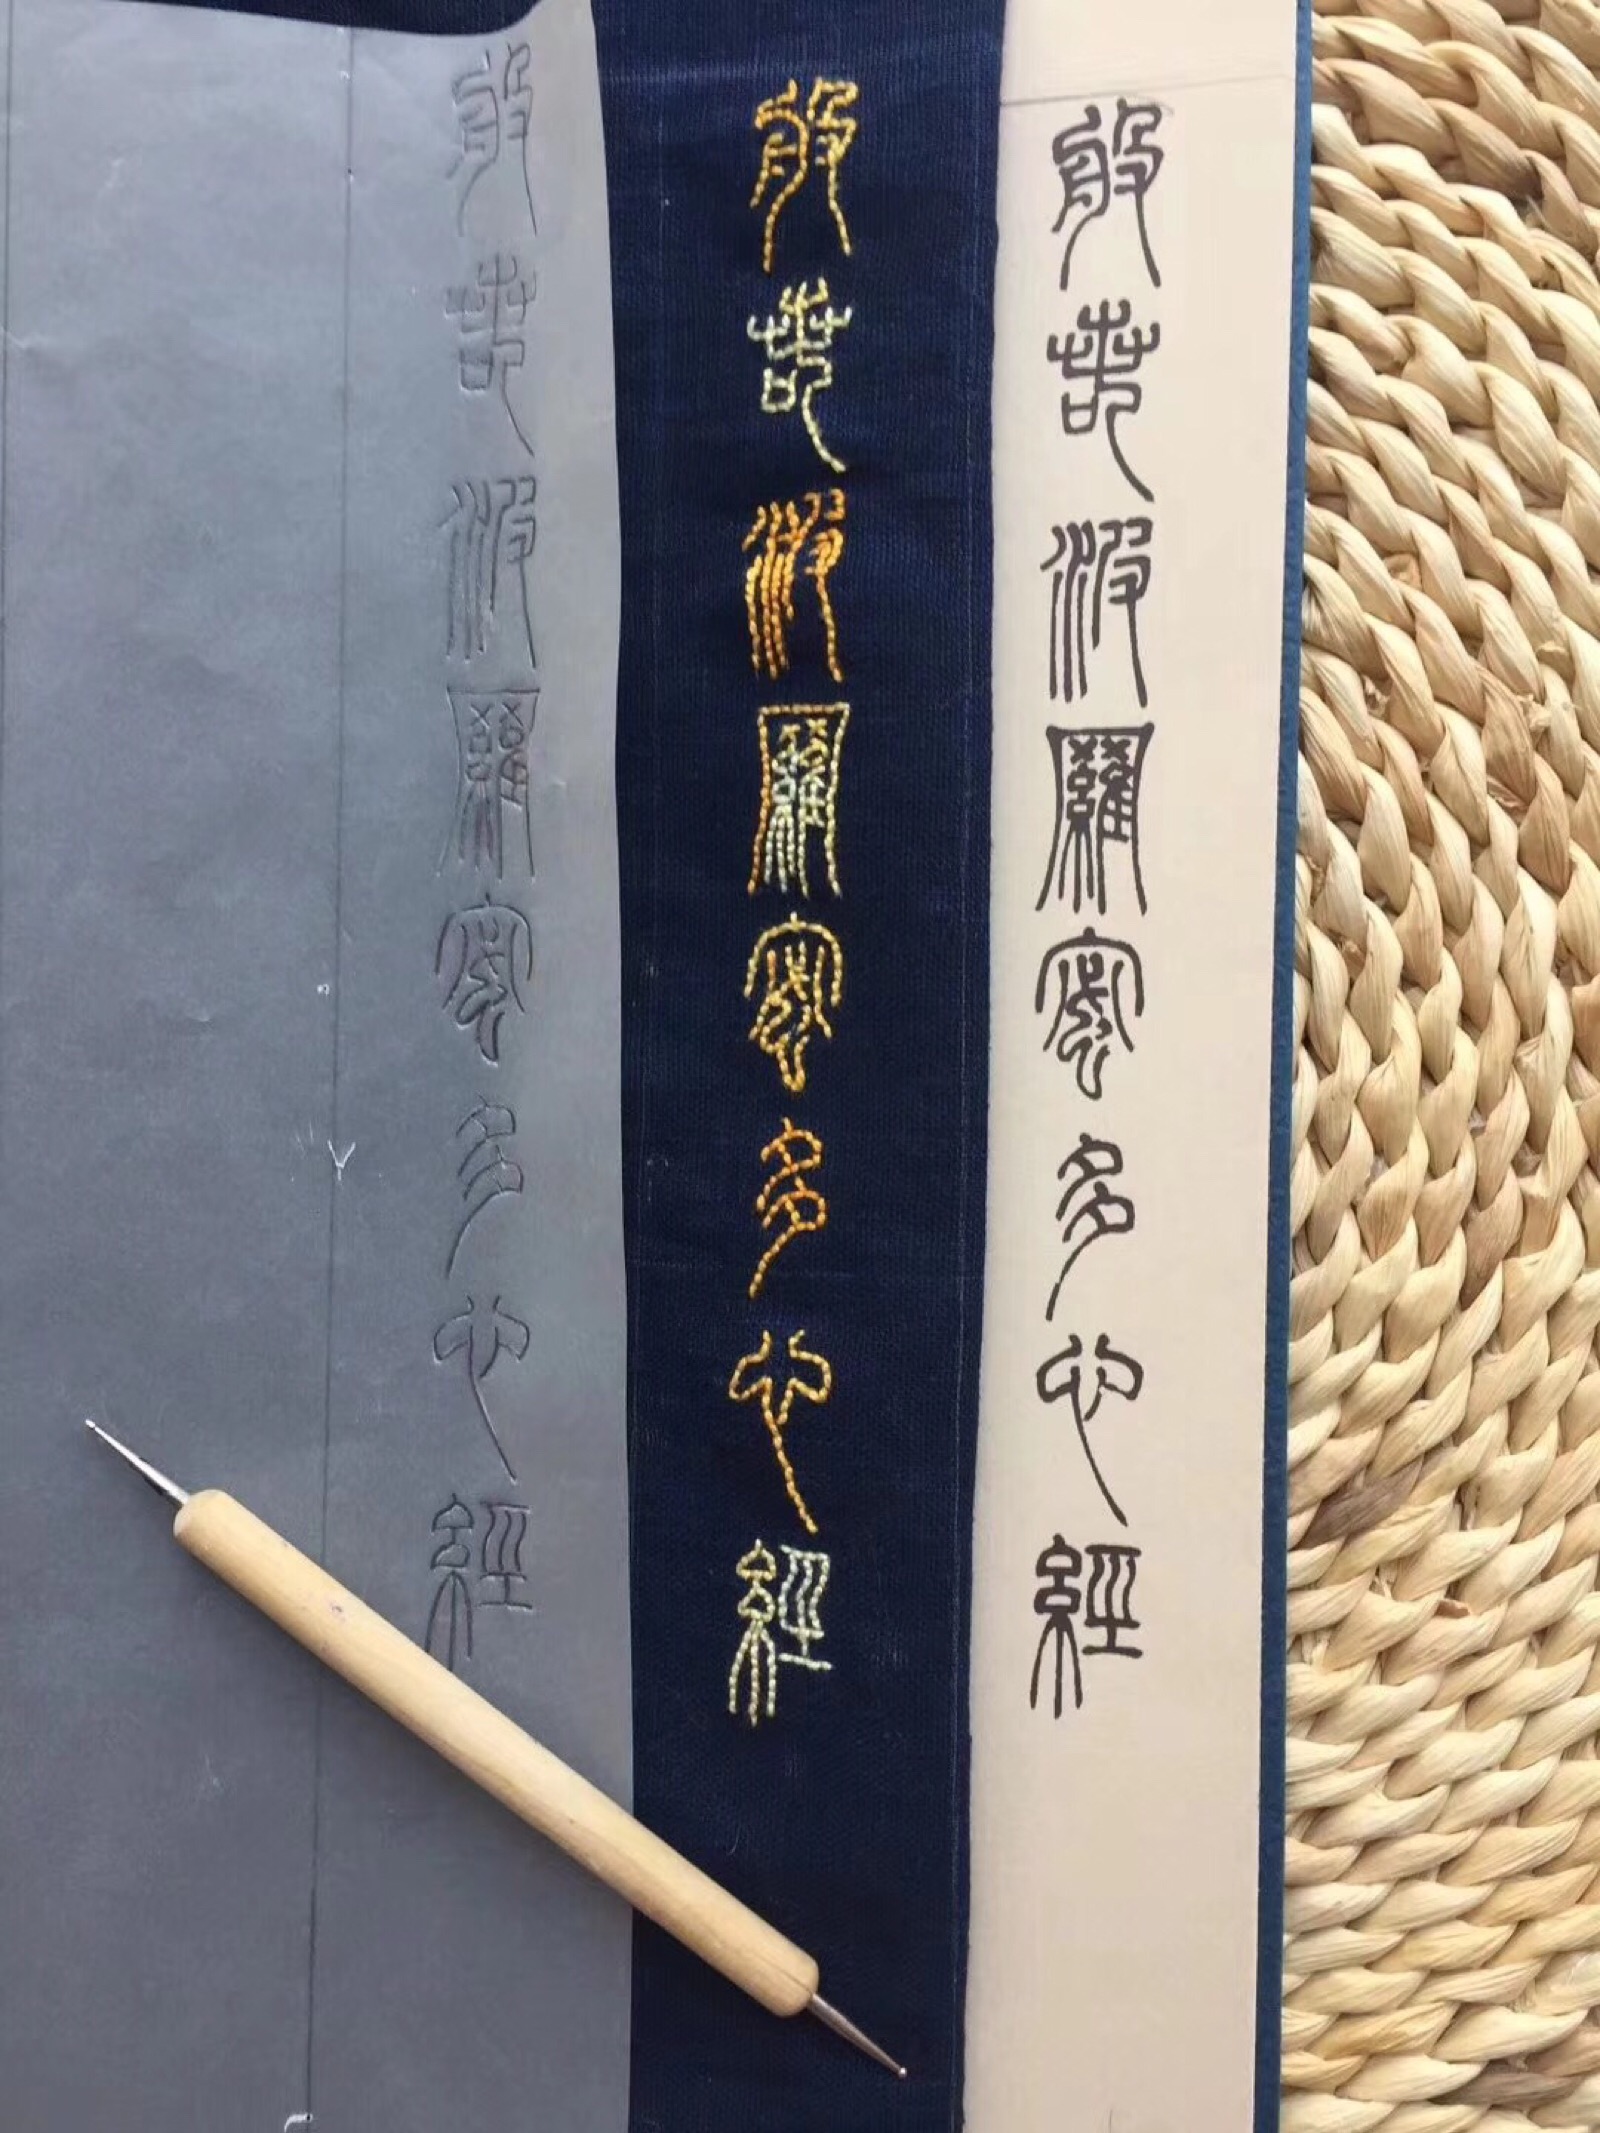 般若波羅蜜多心經
般若波羅蜜多心經
般若波羅蜜多心經